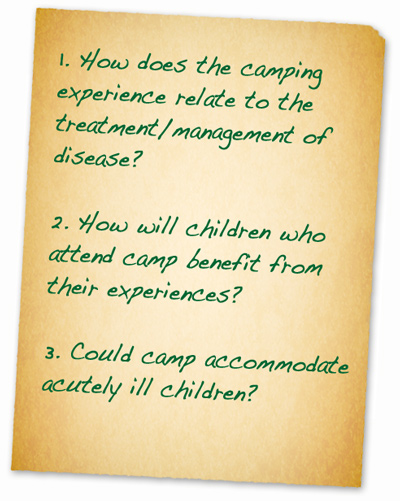 1. How does the camping
experience relate to the
treatment/management of
disease?
2. How will children who
attend camp benefit from
their experiences?
3. Could camp accommodate
acutely ill children?